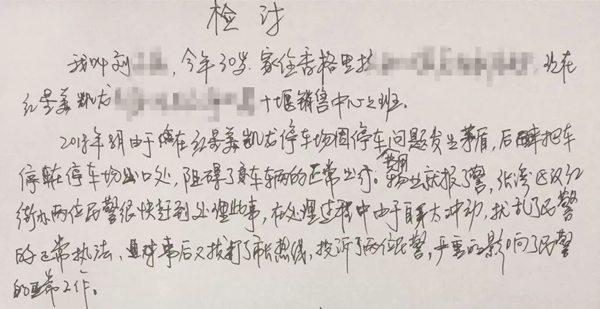 检讨
我叫刘，今年30岁 家住香格里拉 现在
红星美凯龙 十堰销售中心上班。
2018年月由于在红星美凯龙停车场因停车费用问题发生矛盾，后把车
停在停车场出口处，阻碍了车辆的正常出行。物业就报了警，张湾区汉江
街办两位民警很快赶到处理此事，在处理过程中由于冲动，扰乱了民警
的正常执法，事后又拨打了市长热线，投诉了两位民警，严重的影响了民警
的正常工作。